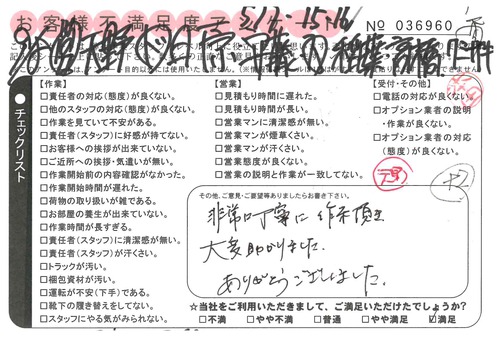 お客様不満足度チ
No 036960
【作業】
□責任者の対応(態度)が良くない。
□他のスタッフの対応(態度)が良くない。
□作業を見ていて不安がある。
□責任者(スタッフ)に好感が持てない。
□お客様への挨拶が出来ていない。
□ご近所への挨拶・気遣いが無い。
□作業開始前の内容確認がなかった。
□作業開始時間が遅れた。
□荷物の取り扱いが雑である。
□お部屋の養生が出来ていない。
□作業時間が長すぎる。
□責任者(スタッフ)に清潔感が無い。
□責任者(スタッフ)が汗くさい。
□トラックが汚い。
□梱包資材が汚い。
□運転が不安(下手)である。
□靴下の履き替えをしてない。
□スタッフにやる気がみられない。
【営業】
□見積もり時間に遅れた。
□見積もり時間が長い。
□営業マンに清潔感が無い。
□営業マンが煙草くさい。
□営業マンが汗くさい。
□営業態度が良くない。
□営業の説明と作業が一致してない。
【受付・その他】
□電話の対応が良くない。
□オプション業者の説明・作業が良くない。
□オプション業者の対応(態度)が良くない。
チェックリスト
その他、ご意見・ご要望等ありましたらお書き下さい。
非常に丁寧に作業頂き
大変助かりました。
ありがとうございました。
☆当社をご利用いただきまして、ご満足いただけたでしょうか?
□不満 □やや不満 □普通 □やや満足 ☑満足